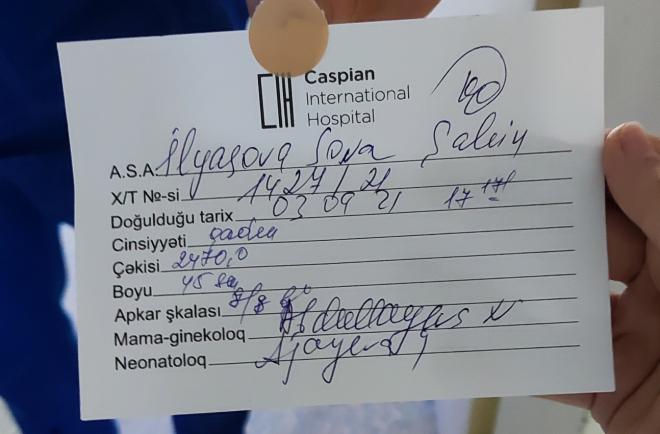 CIH Caspian
International
Hospital
A.S.A. İlyasova Sona Şahin
X/T №-si 1427/21
Doğulduğu tarix 03 09 21 17
Cinsiyyəti qadın
Çəkisi 2470,0
Boyu 45 sm
Apkar şkalası 7/8
Mama-ginekoloq
Neonatoloq